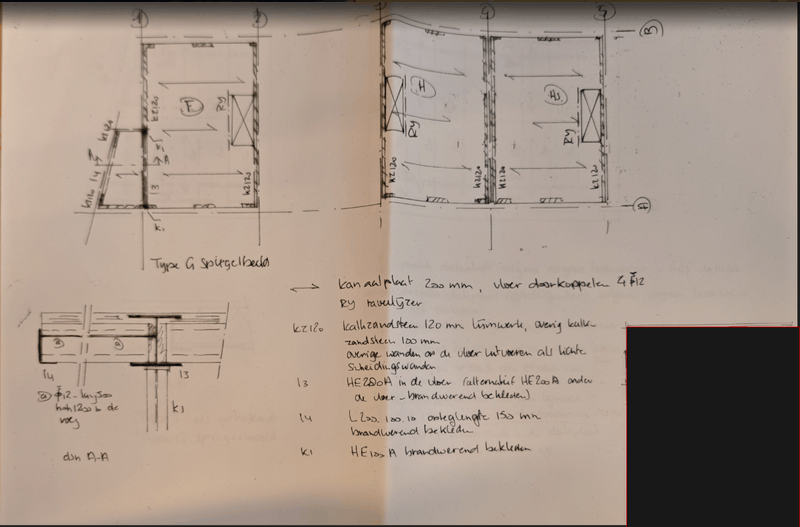 1
2
4
5
B
A
F
H
RY
RY
RY
kz120
kz120
kz120
kz120
kz120
kz120
kz120
l4
l3
k1
Type G Spiegelbeeld
kanaalplaat 200 mm, vloer doorkoppelen
RY raveelijzer
kz120 kalkzandsteen 120 mm lijmwerk, overig kalk-
zandsteen 100 mm
overige wanden op de vloer uitvoeren als lichte
scheidingswanden
l3 HE280A in de vloer (alternatief HE200A onder
de vloer - brandwerend bekleden)
l4 L200.100.10 opleglengte 150 mm
brandwerend bekleden
k1 HE100A brandwerend bekleden
a
a
l4
l3
k1
a
hoh 1200 in de
voeg
dsn A-A